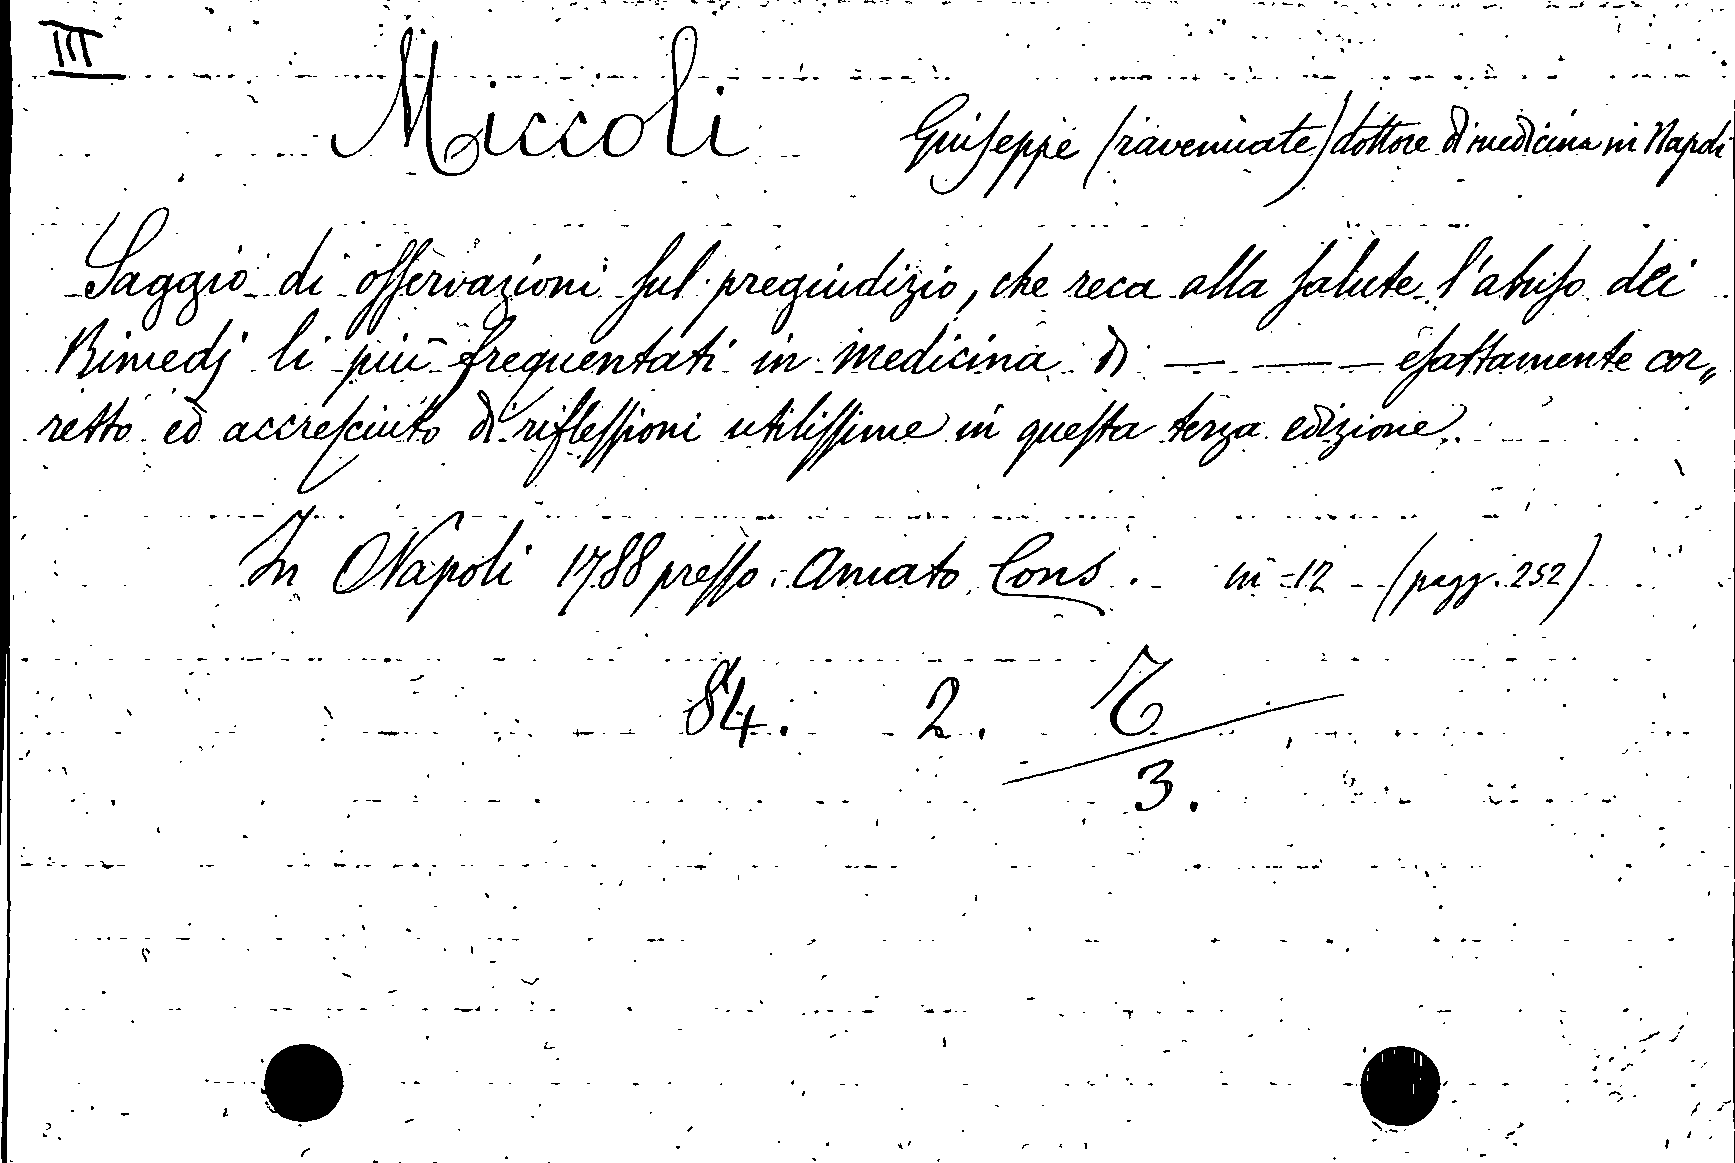 III
Miccoli Giuseppe (ravennate) dottore di medicina in Napoli
Saggio di osservazioni sul pregiudizio, che reca alla salute l'abuso dei
Rimedj li più frequentati in medicina di — — — esattamente cor„
retto ed accresciuto di riflessioni utilissime in questa terza edizione.
In Napoli 1788 presso Amato Cons. in-12 (pagg. 252)
84. 2. T
3.